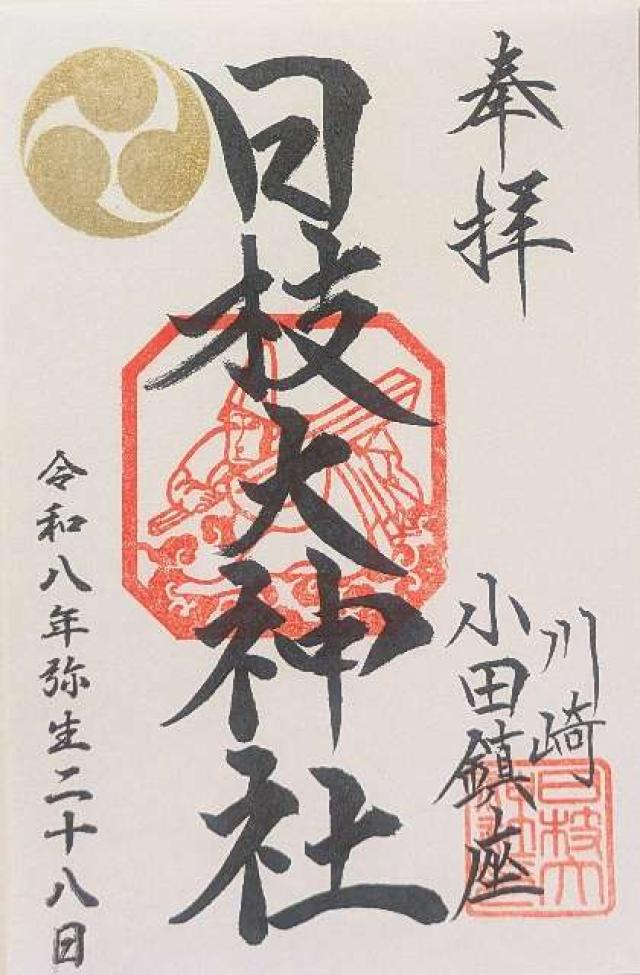 奉拝
川崎
小田鎮座
日枝大神社
令和八年弥生二十八日